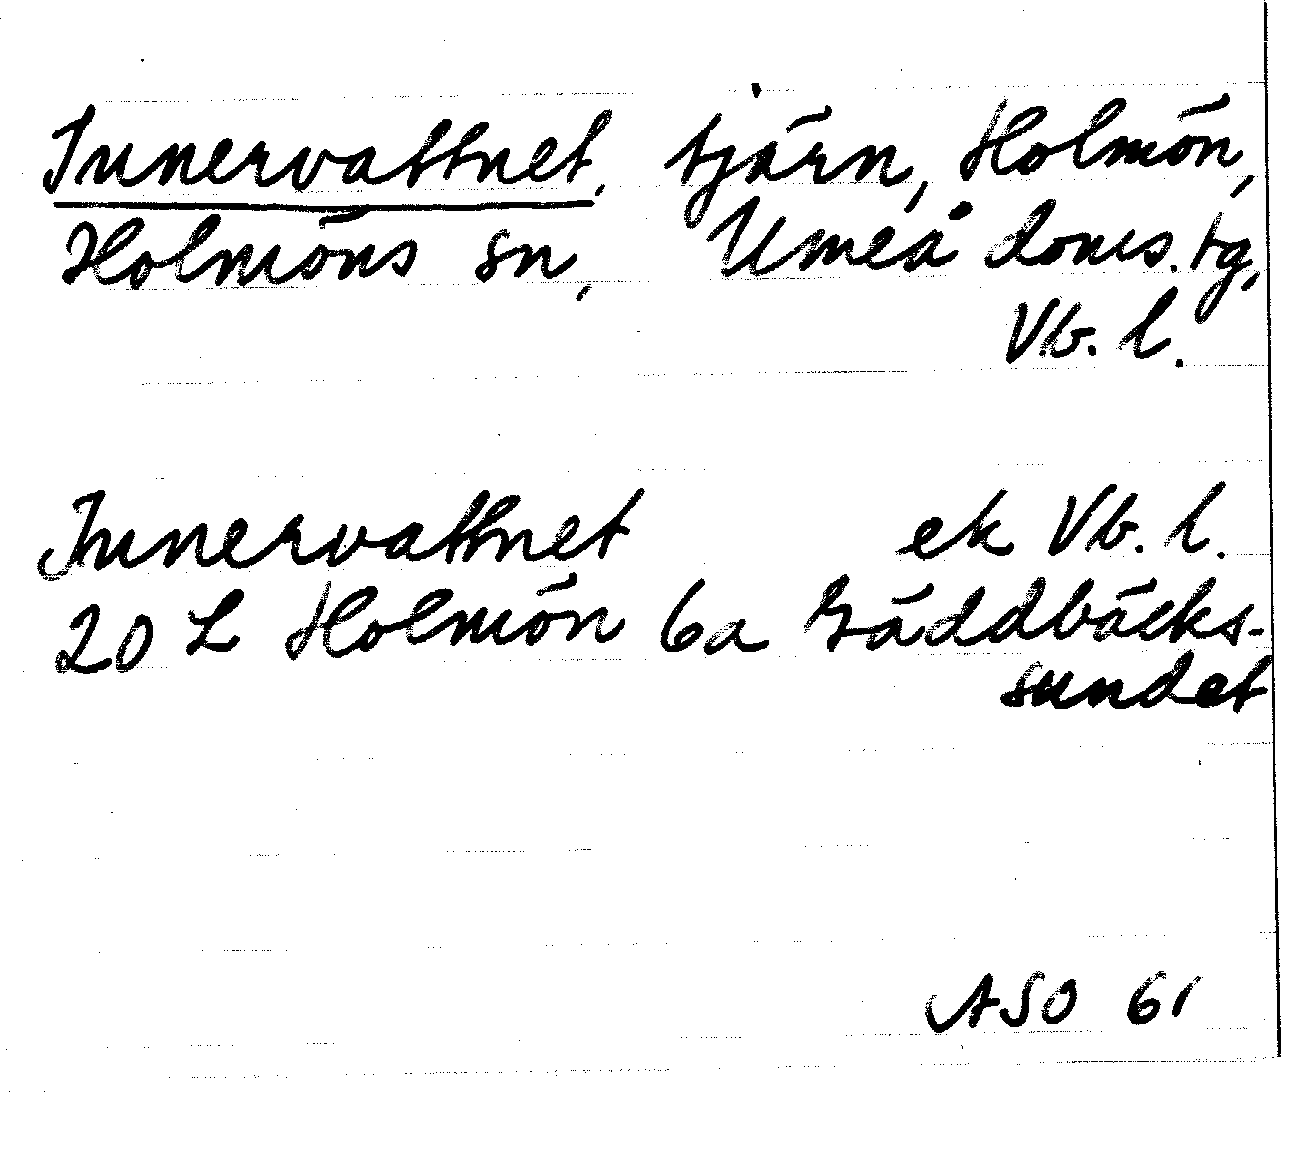 Innervattnet, tjärn, Holmön,
Holmöns sn, Umeå doms. tg,
Vb. l.
Innervattnet ek Vb. l.
20 L Holmön 6a Gäddbäcks-
sundet
ASO 61